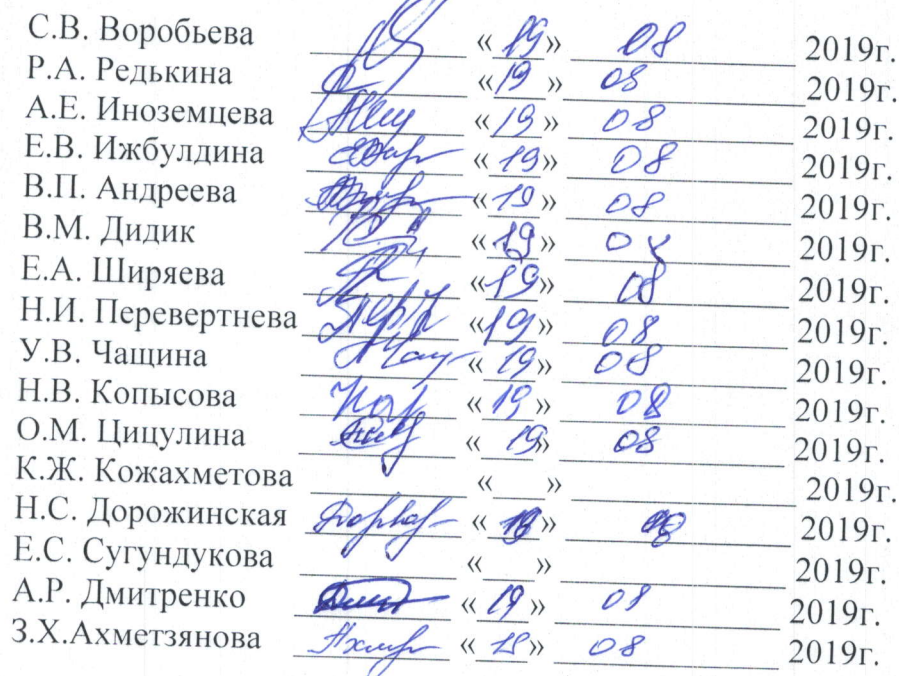 С.В. Воробьева «19» 08 2019г.
Р.А. Редькина «19» 08 2019г.
А.Е. Иноземцева «19» 08 2019г.
Е.В. Ижбулдина «19» 08 2019г.
В.П. Андреева «19» 08 2019г.
В.М. Дидик «19» 08 2019г.
Е.А. Ширяева «19» 08 2019г.
Н.И. Перевертнева «19» 08 2019г.
У.В. Чащина «19» 08 2019г.
Н.В. Копысова «19» 08 2019г.
О.М. Цицулина «19» 08 2019г.
К.Ж. Кожахметова «___» 2019г.
Н.С. Дорожинская 2019г.
Е.С. Сугундукова «___» 2019г.
А.Р. Дмитренко «19» 08 2019г.
З.Х.Ахметзянова 08 2019г.